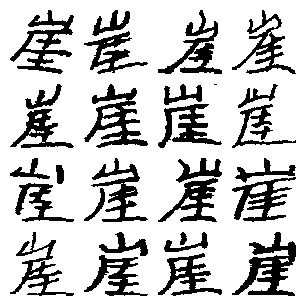 崖崖崖崖
崖崖崖崖
崖崖崖崖
崖崖崖崖